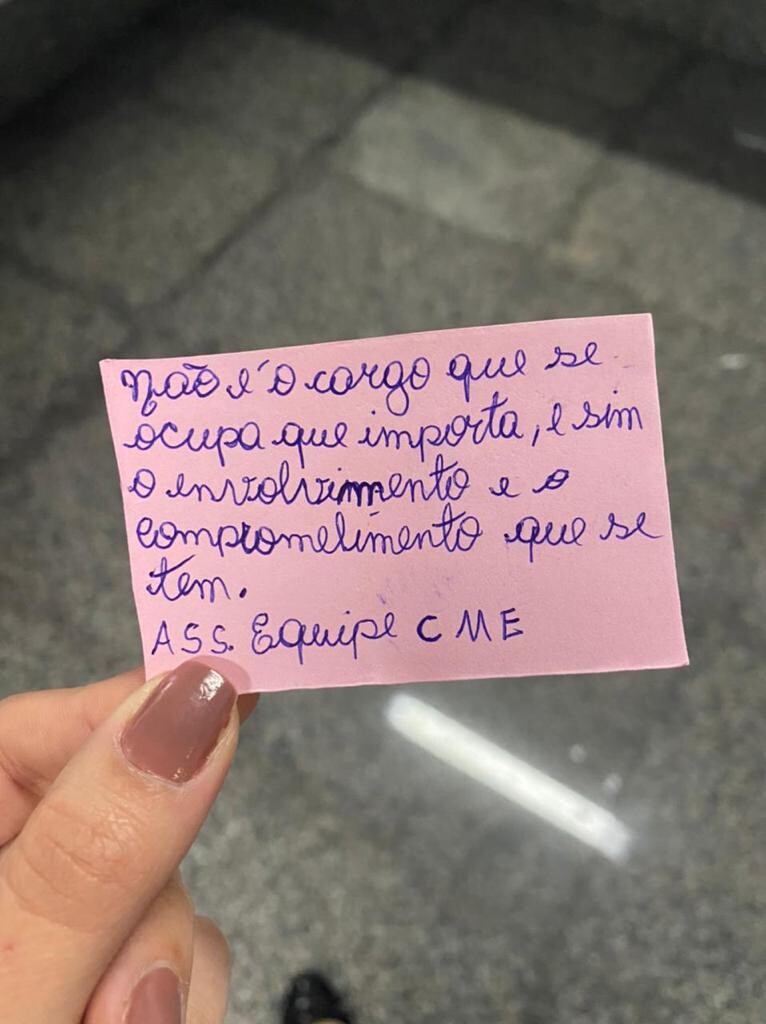 Não é o cargo que se
ocupa que importa, e sim
o envolvimento e o
comprometimento que se
tem.
ASS. Equipe CME